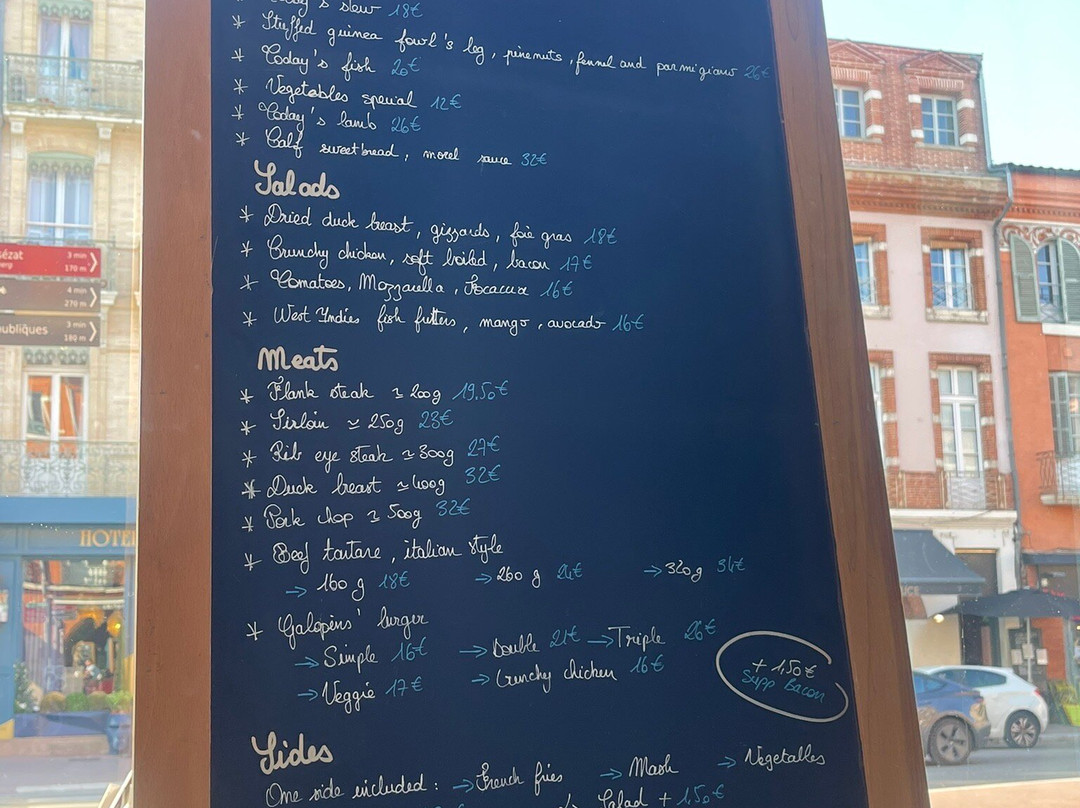 's stew 18€
* Stuffed guinea fowl's leg, pinenuts, fennel and parmigiano 26€
* Today's fish 20€
* Vegetables special 12€
* Today's lamb 26€
* Calf sweetbread, morel sauce 32€
Salads
* Dried duck breast, gizzards, foie gras 18€
* Crunchy chicken, soft boiled, bacon 17€
* Tomatoes, Mozzarella, Focaccia 16€
* West Indies fish fritters, mango, avocado 16€
Meats
* Flank steak ≃ 200g 19,50€
* Sirloin ≃ 250g 23€
* Rib eye steak ≃ 300g 27€
* Duck breast ≃ 400g 32€
* Pork chop ≃ 500g 32€
* Beef tartare, italian style
→ 160 g 18€ → 260 g 26€ → 320g 34€
* Galopins' burger
→ Simple 16€ → Double 21€ → Triple 26€
→ Veggie 17€ → Crunchy chicken 16€
+ 1,50€
Supp Bacon
Sides
One side included: → French fries → Mash → Vegetables
Salad + 1,50€
sézat 3 min
berg 170 m
4 min
270 m
publiques 3 min
180 m
HOTEL